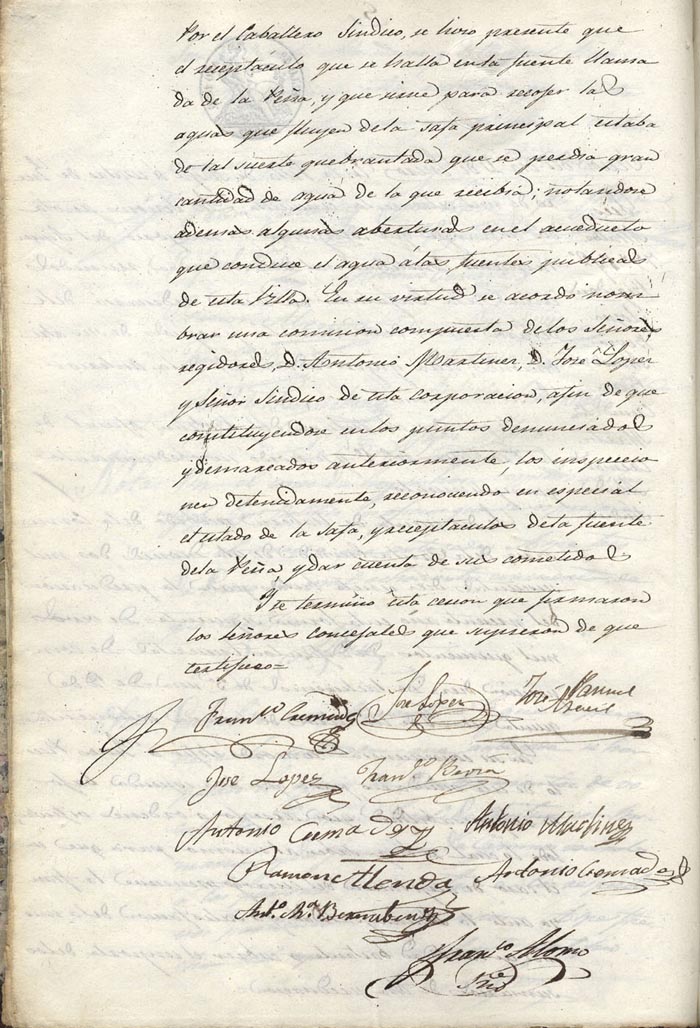 Por el Caballero Sindico, se hizo presente que
el receptáculo que se halla en la fuente llama
da de la Peña, y que sirve para recojer las
aguas que fluyen de la safa principal estaba
de tal suerte quebrantada que se perdia gran
cantidad de agua de la que recibia; notandose
ademas algunas aberturas en el acueducto
que conduce el agua á las fuentes publicas
de esta Villa. En su virtud se acordó nom
brar una comision compuesta de los Señores
regidores, D. Antonio Martinez, D. José Lopez
y Señor Sindico de esta corporacion, afin de que
constituyendose en los puntos denunciados
y demarcados anteriormente, los inspeccio
nen detenidamente, reconociendo en especial
el estado de la safa, y receptaculos de la fuente
de la Peña, y dar cuenta de sus cometidos
Y se terminó esta cesion que firmaron
los señores concejales que supieron de que
certifico=
Fran.co Cremades José Lopez José Manuel
José Lopez Fran.co
Antonio Cremades Antonio Martinez
Ramon Llorca Antonio Cremades
Ant.o M.a Bernabeu
Fran.co Alonso
Srio